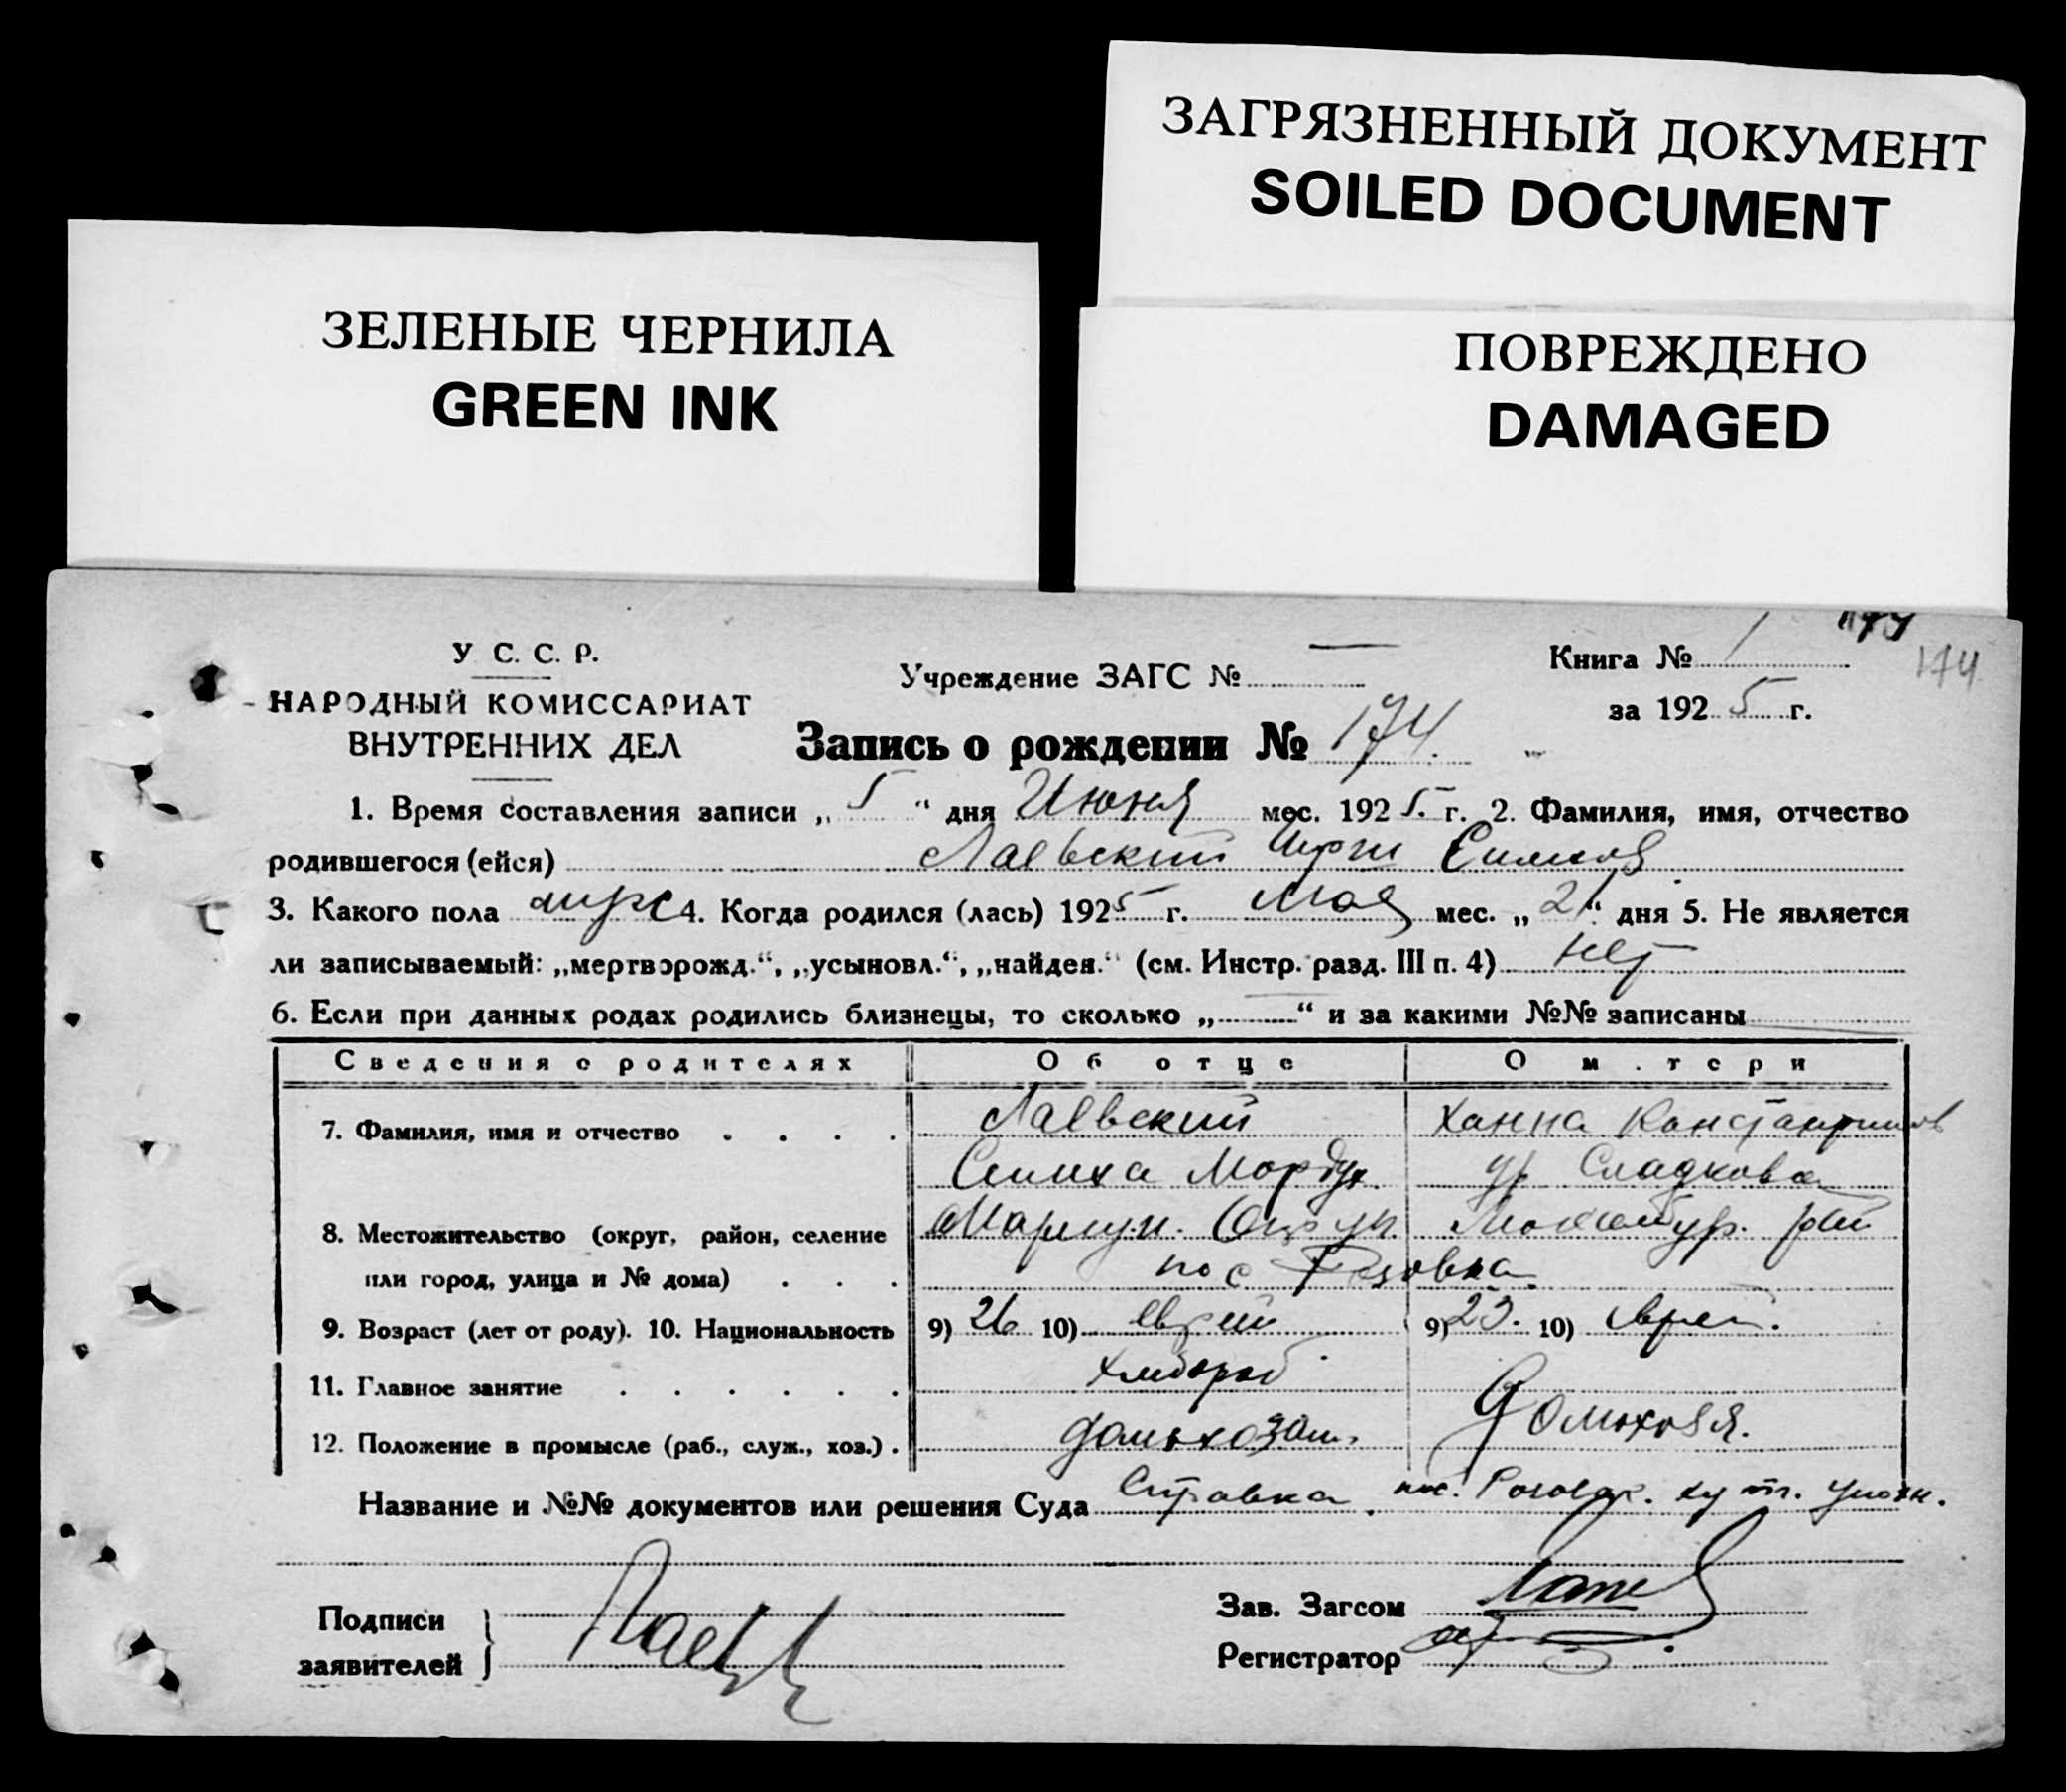 ЗАГРЯЗНЕННЫЙ ДОКУМЕНТ
SOILED DOCUMENT
ЗЕЛЕНЫЕ ЧЕРНИЛА
GREEN INK
ПОВРЕЖДЕНО
DAMAGED
У С. С. Р.
НАРОДНЫЙ КОМИССАРИАТ
ВНУТРЕННИХ ДЕЛ
Учреждение ЗАГС № —
Книга № 1
174
за 1925 г.
Запись о рождении № 174.
1. Время составления записи „5“ дня Июня мес. 1925 г. 2. Фамилия, имя, отчество
родившегося (ейся) Лаевский
3. Какого пола муж 4. Когда родился (лась) 1925 г. Мая мес. „21“ дня 5. Не является
ли записываемый: „мертворожд.“, „усыновл.“, „найден.“ (см. Инстр. разд. III п. 4) нет
6. Если при данных родах родились близнецы, то сколько „—“ и за какими №№ записаны
Сведения о родителях Об отце О м.тери
7. Фамилия, имя и отчество Лаевский Ханна
Симха Мордух. ур Сладкова
8. Местожительство (округ, район, селение Мариуп. Округ
или город, улица и № дома) пос
9. Возраст (лет от роду). 10. Национальность 9) 26 10) еврей 9) 23. 10) еврей.
11. Главное занятие хлебороб
12. Положение в промысле (раб., служ., хоз.) домохозяин. домохозя.
Название и №№ документов или решения Суда Справка пос.
Подписи
заявителей
Зав. Загсом
Регистратор